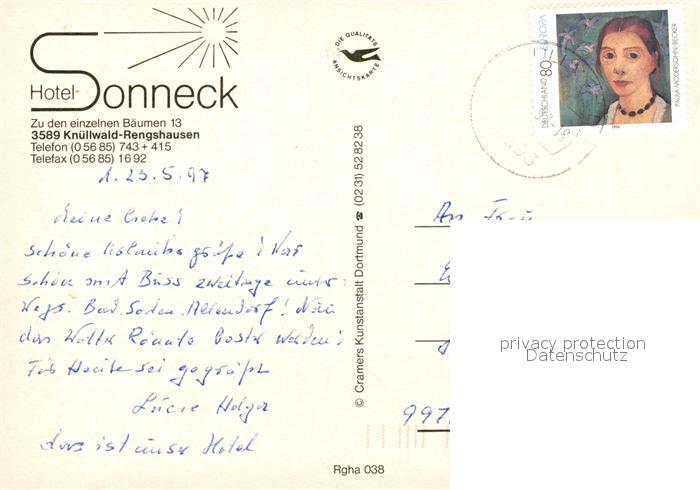 Hotel Sonneck
Zu den einzelnen Bäumen 13
3589 Knüllwald-Rengshausen
Telefon (0 56 85) 743 + 415
Telefax (0 56 85) 16 92
d. 23.5.97
Meine Liebe!
schöne Urlaubsgrüße! War
schön mit Buss zweitage unter-
wegs. Bad. Soden. Allendorf! Nun
das Wetter könnte besser werden!
Für Heute sei gegrüßt
Lucie Holger
das ist unser Hotel
DIE QUALITÄTS
ANSICHTSKARTE
© Cramers Kunstanstalt Dortmund ☎ (02 31) 52 82 38
Rgha 038
DEUTSCHLAND 80 EUROPA
PAULA MODERSOHN-BECKER
1996
An Frau
997
privacy protection
Datenschutz